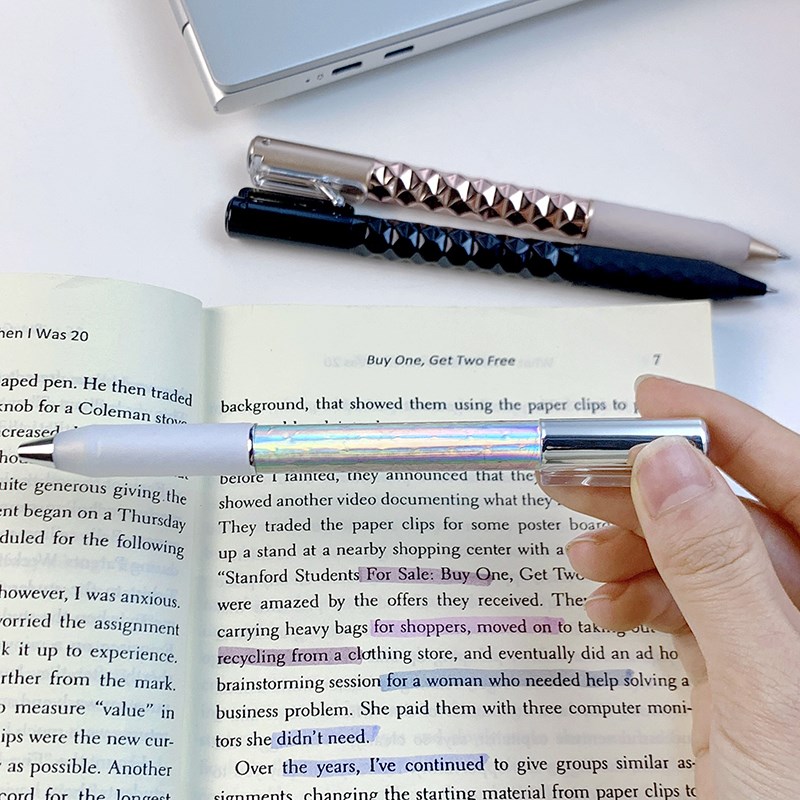 hen I Was 20
aped pen. He then traded
knob for a Coleman stove
creased
uite generous giving the
ent began on a Thursday
duled for the following
however, I was anxious.
orried the assignment
k it up to experience.
rther from the mark.
o measure “value” in
ips were the new cur-
as possible. Another
cord for the longest
Buy One, Get Two Free
7
background, that showed them using the paper clips to p
before I fainted, they announced that they
showed another video documenting what they
They traded the paper clips for some poster board
up a stand at a nearby shopping center with a
“Stanford Students For Sale: Buy One, Get Two
were amazed by the offers they received. They
carrying heavy bags for shoppers, moved on to taking out
recycling from a clothing store, and eventually did an ad ho
brainstorming session for a woman who needed help solving a
business problem. She paid them with three computer moni-
tors she didn’t need.
Over the years, I’ve continued to give groups similar as-
signments, changing the starting material from paper clips to